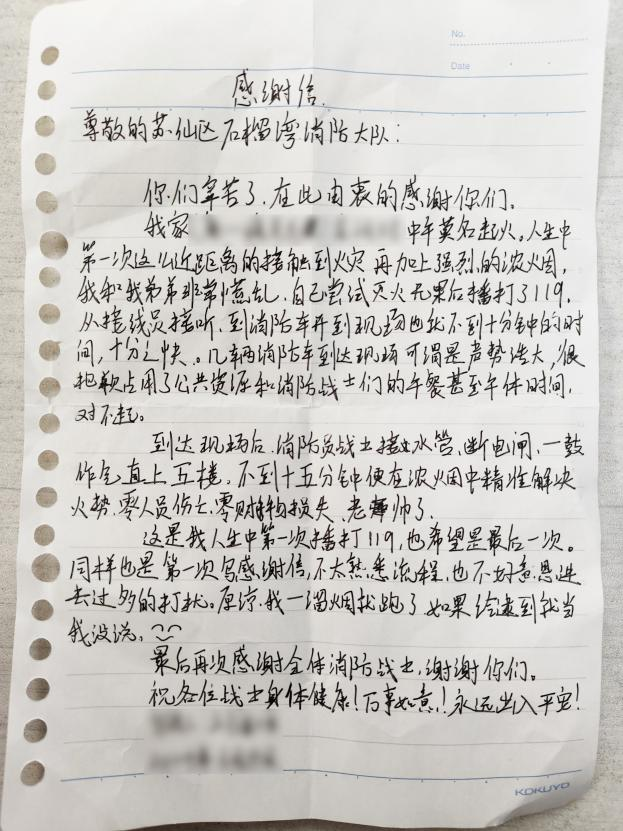 No.
Date
感谢信
尊敬的苏仙区石榴湾消防大队:
你们辛苦了,在此由衷的感谢你们。
我家 中午莫名起火。人生中
第一次这么近距离的接触到火灾 再加上强烈的浓火烟,
我和我弟弟非常慌乱,自己尝试灭火无果后播打了119,
从接线员接听,到消防车开到现场也就不到十分钟的时
间,十分之快。几辆消防车到达现场可谓是声势浩大,很
抱歉占用了公共资源和消防战士们的午餐甚至午休时间,
对不起。
到达现场后,消防员战士接水管,断电闸,一鼓
作气直上五楼,不到十五分钟便在浓火烟中精准解决
火势,零人员伤亡,零财物损失,老帅了。
这是我人生中第一次播打119,也希望是最后一次。
同样也是第一次写感谢信,不太熟悉流程,也不好意思进
去过多的打扰。原谅我一溜烟就跑了 如果给逮到就当
我没说。
最后再次感谢全体消防战士,谢谢你们。
祝各位战士身体健康!万事如意!永远出入平安!
KOKUYO